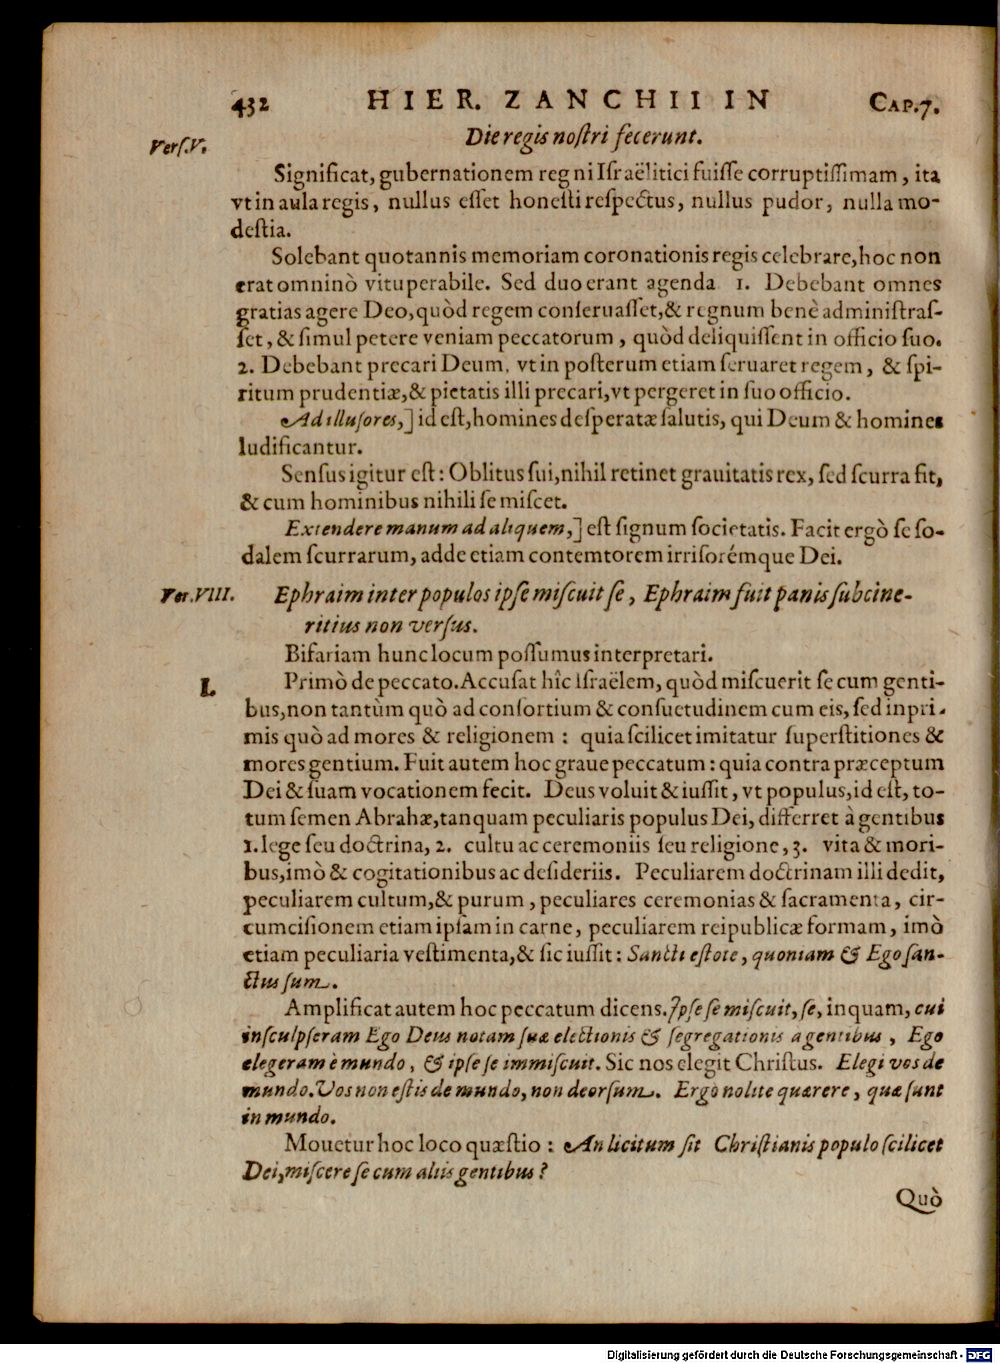 432 HIER. ZANCHII IN CAP.7.
Verſ.V. Die regis noſtri fecerunt.
Significat, gubernationem regni Iſraëlitici fuiſſe corruptiſſimam, ita
vt in aula regis, nullus eſſet honeſti reſpectus, nullus pudor, nulla mo-
deſtia.
Solebant quotannis memoriam coronationis regis celebrare, hoc non
erat omninò vituperabile. Sed duo erant agenda 1. Debebant omnes
gratias agere Deo, quòd regem conſeruaſſet, & regnum benè adminiſtraſ-
ſet, & ſimul petere veniam peccatorum, quòd deliquiſſent in officio ſuo.
2. Debebant precari Deum, vt in poſterum etiam ſeruaret regem, & ſpi-
ritum prudentiæ, & pietatis illi precari, vt pergeret in ſuo officio.
Ad illuſores,] id eſt, homines deſperatæ ſalutis, qui Deum & homines
ludificantur.
Senſus igitur eſt: Oblitus ſui, nihil retinet grauitatis rex, ſed ſcurra fit,
& cum hominibus nihili ſe miſcet.
Extendere manum ad aliquem,] eſt ſignum ſocietatis. Facit ergò ſe ſo-
dalem ſcurrarum, adde etiam contemtorem irriſorémque Dei.
Ver.VIII. Ephraim inter populos ipſe miſcuit ſe, Ephraim fuit panis ſubcine-
ritius non verſus.
Bifariam hunc locum poſſumus interpretari.
I. Primò de peccato. Accuſat hîc Iſraëlem, quòd miſcuerit ſe cum genti-
bus, non tantùm quò ad conſortium & conſuetudinem cum eis, ſed inpri-
mis quò ad mores & religionem: quia ſcilicet imitatur ſuperſtitiones &
mores gentium. Fuit autem hoc graue peccatum: quia contra præceptum
Dei & ſuam vocationem fecit. Deus voluit & iuſſit, vt populus, id eſt, to-
tum ſemen Abrahæ, tanquam peculiaris populus Dei, differret à gentibus
1. lege ſeu doctrina, 2. cultu ac ceremoniis ſeu religione, 3. vita & mori-
bus, imò & cogitationibus ac deſideriis. Peculiarem doctrinam illi dedit,
peculiarem cultum, & purum, peculiares ceremonias & ſacramenta, cir-
cumciſionem etiam ipſam in carne, peculiarem reipublicæ formam, imò
etiam peculiaria veſtimenta, & ſic iuſſit: Sancti eſtote, quoniam & Ego ſan-
ctus ſum.
Amplificat autem hoc peccatum dicens. Ipſe ſe miſcuit, ſe, inquam, cui
inſculpſeram Ego Deus notam ſuæ electionis & ſegregationis a gentibus, Ego
elegeram è mundo, & ipſe ſe immiſcuit. Sic nos elegit Chriſtus. Elegi vos de
mundo. Vos non eſtis de mundo, non deorſum. Ergo nolite quærere, quæ ſunt
in mundo.
Mouetur hoc loco quæſtio: An licitum ſit Chriſtianis populo ſcilicet
Dei, miſcere ſe cum aliis gentibus?
Quò
Digitalisierung gefördert durch die Deutsche Forschungsgemeinschaft - DFG